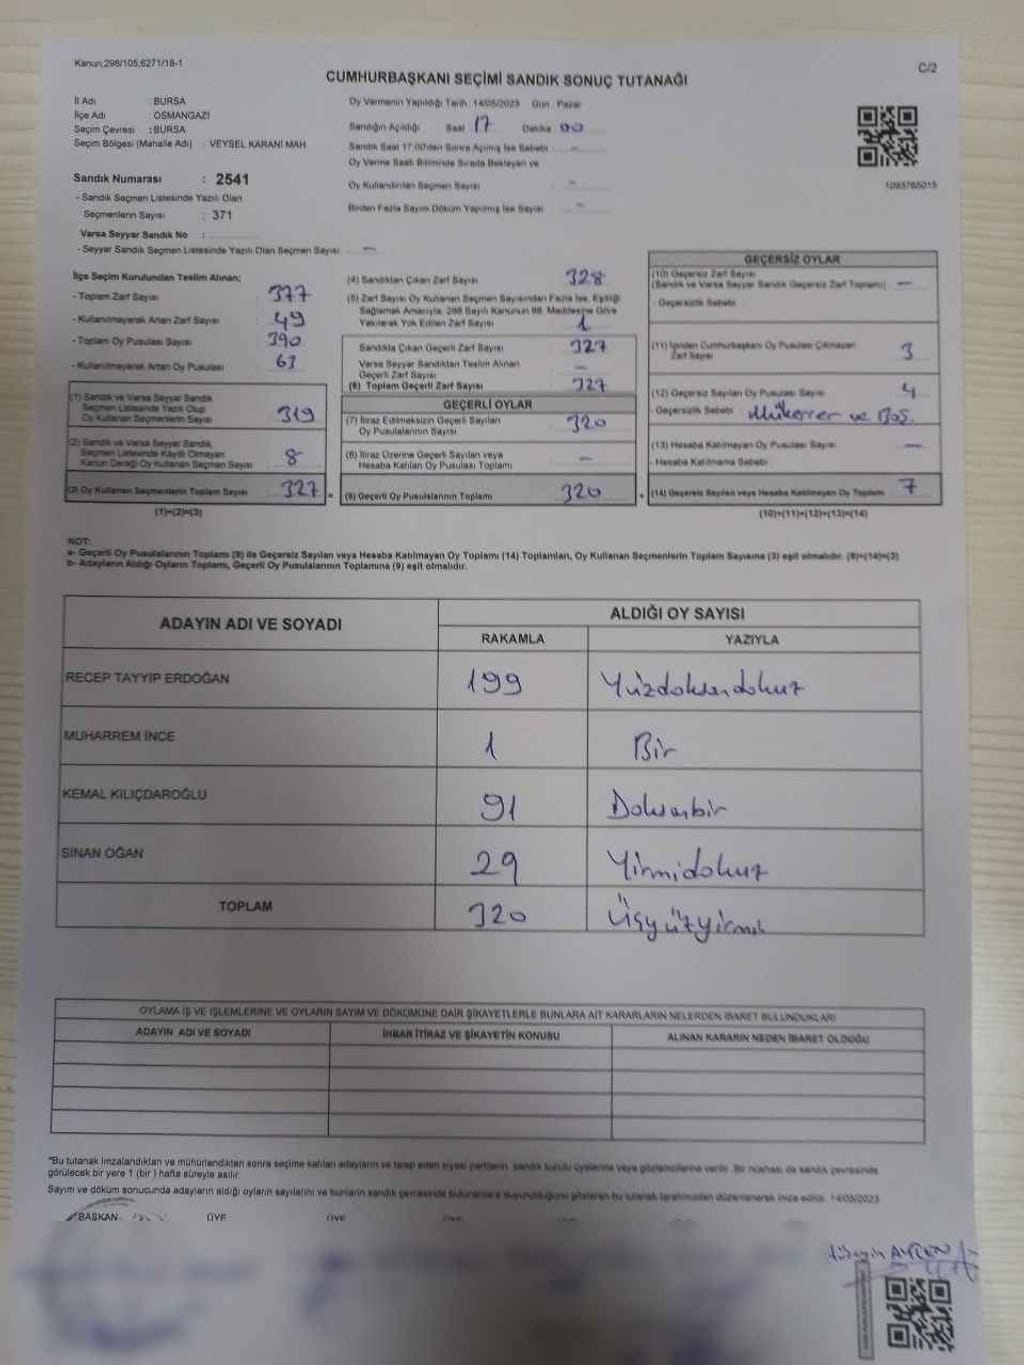 Kanun;298/105,6271/18-1
C/2
CUMHURBAŞKANI SEÇİMİ SANDIK SONUÇ TUTANAĞI
İl Adı : BURSA
İlçe Adı : OSMANGAZİ
Seçim Çevresi : BURSA
Seçim Bölgesi (Mahalle Adı) : VEYSEL KARANİ MAH
Sandık Numarası : 2541
- Sandık Seçmen Listesinde Yazılı Olan
Seçmenlerin Sayısı : 371
Varsa Seyyar Sandık No :
- Seyyar Sandık Seçmen Listesinde Yazılı Olan Seçmen Sayısı : —
Oy Vermenin Yapıldığı Tarih : 14/05/2023 Gün : Pazar
Sandığın Açıldığı Saat 17 Dakika 00
Sandık Saat 17:00'den Sonra Açılmış İse Sebebi : —
Oy Verme Saati Bitiminde Sırada Bekleyen ve
Oy Kullandırılan Seçmen Sayısı : —
Birden Fazla Sayım Döküm Yapılmış İse Sayısı : —
1093765015
İlçe Seçim Kurulundan Teslim Alınan;
- Toplam Zarf Sayısı : 377
- Kullanılmayarak Artan Zarf Sayısı : 49
- Toplam Oy Pusulası Sayısı : 390
- Kullanılmayarak Artan Oy Pusulası : 63
(1) Sandık ve Varsa Seyyar Sandık
Seçmen Listesinde Yazılı Olup
Oy Kullanan Seçmenlerin Sayısı : 319
(2) Sandık ve Varsa Seyyar Sandık
Seçmen Listesinde Kayıtlı Olmayan
Kanun Gereği Oy Kullanan Seçmen Sayısı : 8
(3) Oy Kullanan Seçmenlerin Toplam Sayısı : 327
(1)+(2)=(3)
(4) Sandıktan Çıkan Zarf Sayısı : 328
(5) Zarf Sayısı Oy Kullanan Seçmen Sayısından Fazla İse, Eşitliği
Sağlamak Amacıyla; 298 Sayılı Kanunun 98. Maddesine Göre
Yakılarak Yok Edilen Zarf Sayısı : 1
Sandıkta Çıkan Geçerli Zarf Sayısı : 327
Varsa Seyyar Sandıktan Teslim Alınan
Geçerli Zarf Sayısı : —
(6) Toplam Geçerli Zarf Sayısı : 327
GEÇERLİ OYLAR
(7) İtiraz Edilmeksizin Geçerli Sayılan
Oy Pusulalarının Sayısı : 320
(8) İtiraz Üzerine Geçerli Sayılan veya
Hesaba Katılan Oy Pusulası Toplamı : —
(9) Geçerli Oy Pusulalarının Toplamı : 320
GEÇERSİZ OYLAR
(10) Geçersiz Zarf Sayısı
(Sandık ve Varsa Seyyar Sandık Geçersiz Zarf Toplamı) : —
- Geçersizlik Sebebi :
(11) İçinden Cumhurbaşkanı Oy Pusulası Çıkmayan
Zarf Sayısı : 3
(12) Geçersiz Sayılan Oy Pusulası Sayısı : 4
- Geçersizlik Sebebi : Mükerrer ve Boş.
(13) Hesaba Katılmayan Oy Pusulası Sayısı : —
- Hesaba Katılmama Sebebi :
(14) Geçersiz Sayılan veya Hesaba Katılmayan Oy Toplamı : 7
(10)+(11)+(12)+(13)=(14)
NOT:
a- Geçerli Oy Pusulalarının Toplamı (9) ile Geçersiz Sayılan veya Hesaba Katılmayan Oy Toplamı (14) Toplamları, Oy Kullanan Seçmenlerin Toplam Sayısına (3) eşit olmalıdır. (9)+(14)=(3)
b- Adayların Aldığı Oyların Toplamı, Geçerli Oy Pusulalarının Toplamına (9) eşit olmalıdır.
ADAYIN ADI VE SOYADI
ALDIĞI OY SAYISI
RAKAMLA YAZIYLA
RECEP TAYYİP ERDOĞAN 199 Yüzdoksandokuz
MUHARREM İNCE 1 Bir
KEMAL KILIÇDAROĞLU 91 Doksanbir
SİNAN OĞAN 29 Yirmidokuz
TOPLAM 320 Üçyüzyirmi
OYLAMA İŞ VE İŞLEMLERİNE VE OYLARIN SAYIM VE DÖKÜMÜNE DAİR ŞİKAYETLERLE BUNLARA AİT KARARLARIN NELERDEN İBARET BULUNDUKLARI
ADAYIN ADI VE SOYADI İHBAR İTİRAZ VE ŞİKAYETİN KONUSU ALINAN KARARIN NEDEN İBARET OLDUĞU
*Bu tutanak imzalandıktan ve mühürlendikten sonra seçime katılan adayların ve talep eden siyasi partilerin sandık kurulu üyelerine veya gözlemcilerine verilir. Bir nüshası da sandık çevresinde
görülecek bir yere 1 (bir ) hafta süreyle asılır.
Sayım ve döküm sonucunda adayların aldığı oyların sayılarını ve bunların sandık çevresinde bulunanlara duyurulduğunu gösteren bu tutanak tarafımızdan düzenlenerek imza edildi. 14/05/2023
BAŞKAN ÜYE ÜYE